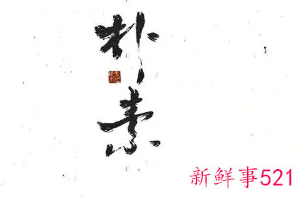 朴素
新鲜事521